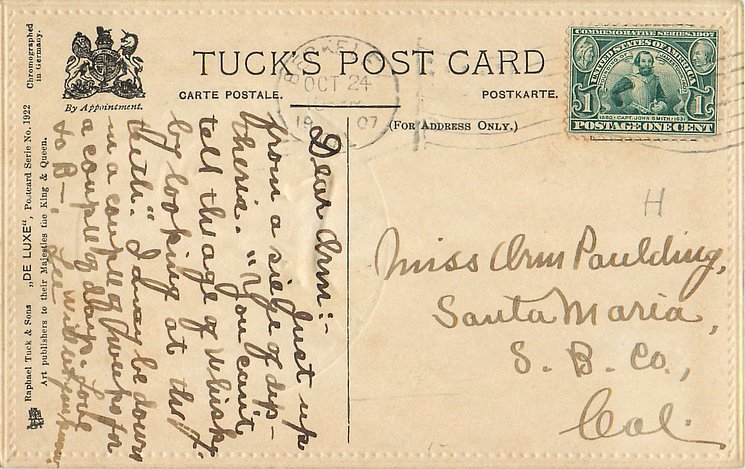 Chromographed
in Germany.
By Appointment.
TUCK'S POST CARD
CARTE POSTALE.
POSTKARTE.
(FOR ADDRESS ONLY.)
BERKELEY
OCT 24
1907
COMMEMORATIVE SERIES, 1907
UNITED STATES OF AMERICA
1580 · CAPT. JOHN SMITH · 1631
1 POSTAGE ONE CENT 1
Raphael Tuck & Sons „DE LUXE“, Postcard Serie No. 1922
Art publishers to their Majesties the King & Queen.
Dear Orm:–
Just up
from a siege of dip–
theria. "You can't
tell the age of Whisky
by looking at the
teeth." I may be down
in a couple of weeks for
a couple of days. Love
to B–. Lee
H
Miss Orm Paulding,
Santa Maria,
S. B. Co.,
Cal.